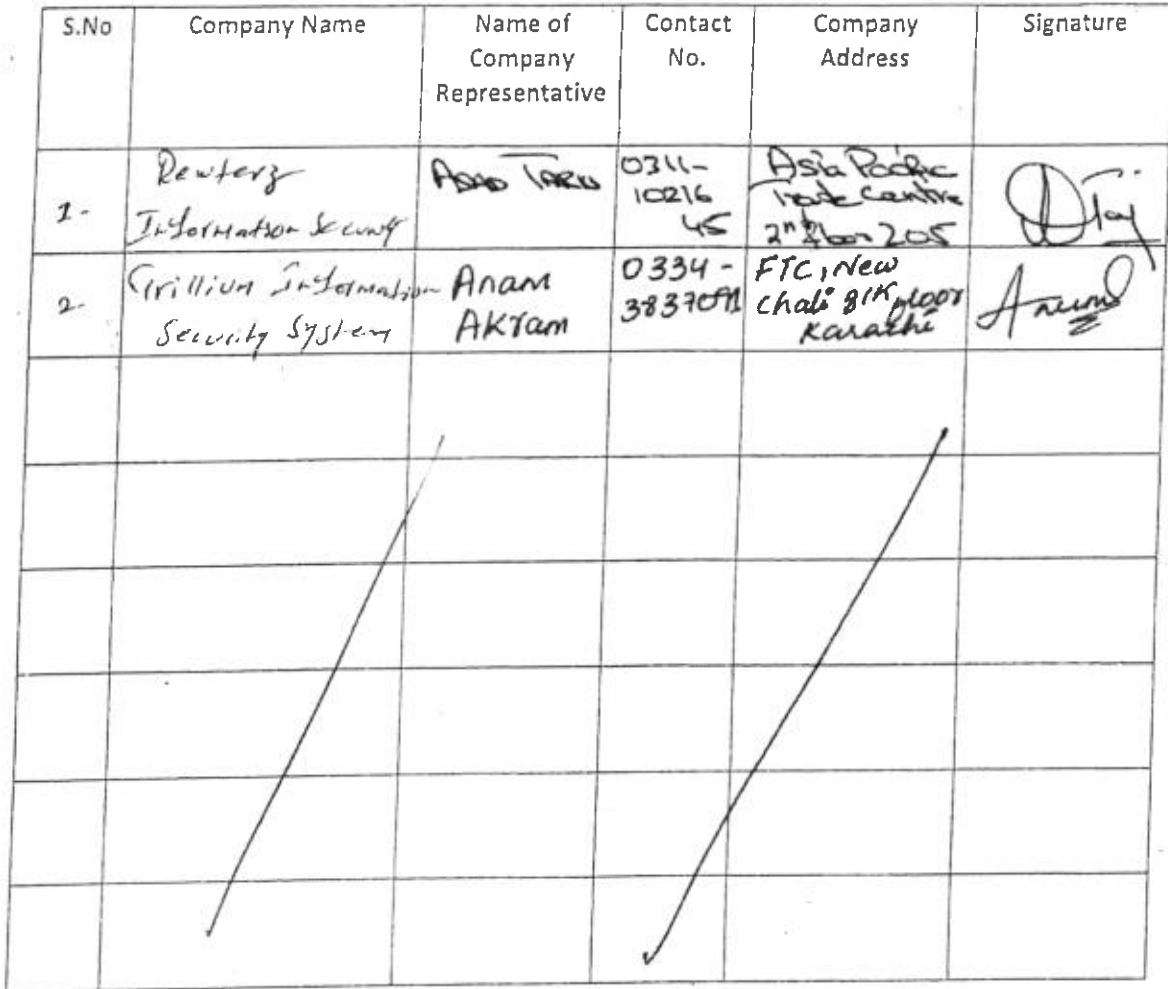 S.No Company Name Name of Company Representative Contact No. Company Address Signature
1- Rewterz Information Security 0311-1021645 Asia Pacific Trade Centre 2nd floor 205
2- Trillium Information Security System Anam Akram 0334- FTC, New Chali 8th floor Karachi